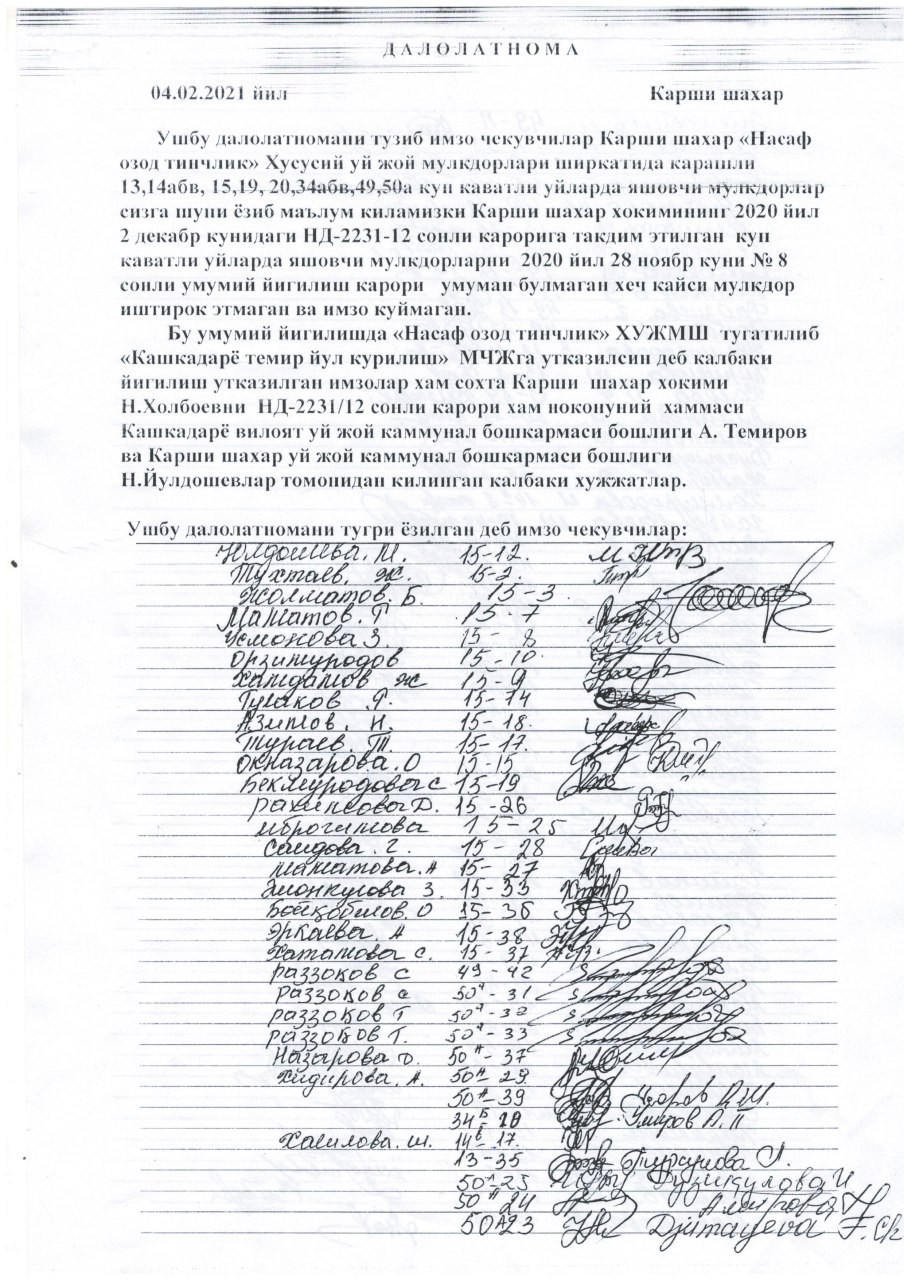 ДАЛОЛАТНОМА
04.02.2021 йил Карши шахар
Ушбу далолатномани тузиб имзо чекувчилар Карши шахар «Насаф
озод тинчлик» Хусусий уй жой мулкдорлари ширкатида карашли
13,14абв, 15,19, 20,34абв,49,50а куп каватли уйларда яшовчи мулкдорлар
сизга шуни ёзиб маълум киламизки Карши шахар хокимининг 2020 йил
2 декабр кунидаги НД-2231-12 сонли карорига такдим этилган куп
каватли уйларда яшовчи мулкдорларни 2020 йил 28 ноябр куни № 8
сонли умумий йигилиш карори умуман булмаган хеч кайси мулкдор
иштирок этмаган ва имзо куймаган.
Бу умумий йигилишда «Насаф озод тинчлик» ХУЖМШ тугатилиб
«Кашкадарё темир йул курилиш» МЧЖга утказилсин деб калбаки
йигилиш утказилган имзолар хам сохта Карши шахар хокими
Н.Холбоевни НД-2231/12 сонли карори хам ноконуний хаммаси
Кашкадарё вилоят уй жой каммунал бошкармаси бошлиги А. Темиров
ва Карши шахар уй жой каммунал бошкармаси бошлиги
Н.Йулдошевлар томонидан килинган калбаки хужжатлар.
Ушбу далолатномани тугри ёзилган деб имзо чекувчилар:
Юлдошева. М. 15-12.
Тухтаев. Ж. 15-2.
Жолматов. Б. 15-3
Маматов. Г 15-7
Усмонова З. 15-8
Орзимуродов 15-10
Хамдамов Ж 15-9
Тулаков Р. 15-14
Азимов. Н. 15-18.
Тураев. Т. 15-17.
Окназарова. О 15-15
Бекмуродова С 15-19
Рахимова Д. 15-26
Иброгимова 15-25
Саидова. Г. 15-28
Маматова. А 15-27
Жонкулова З. 15-33
Бойқобилов. О 15-36
Эркаева. А 15-38
Хатамова С. 15-37
Раззоков С 49-42
Раззоков С 50а-31
Раззоков Т 50а-32
Раззоков Т. 50а-33
Назарова Ф. 50А-37
Хидирова. А. 50А-29
50А-39
34Б 10 Умиров А. П
Халилова. Ш. 14Б-17.
13-35
50А-25 Дузикулова И
50А 24
50А23 Djumayeva F.